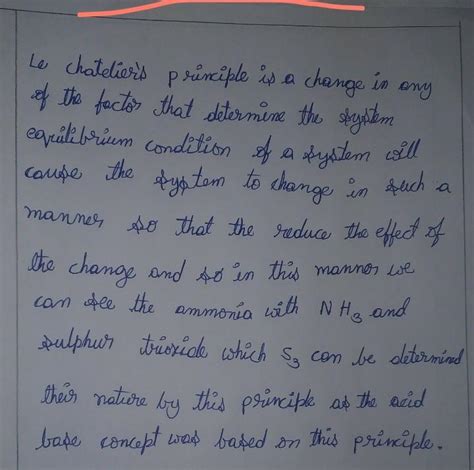 Le chatelier's principle is a change in any
of the factor that determine the system
equilibrium condition of a system will
cause the system to change in such a
manner so that the reduce the effect of
the change and so in this manner we
can see the ammonia with NH3 and
sulphur trioxide which S3 can be determined
their nature by this principle as the acid
base concept was based on this principle.